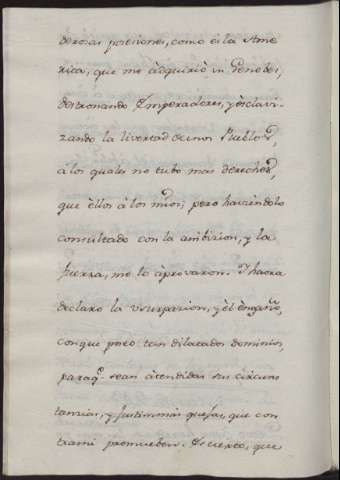 derosas posesiones, como es la Ame
rica, que me àdquiriò un Genobes,
destronando Emperadores, y èsclavi-
zando la livertad de unos Pueblos,
à los quales no tubo mas derechos,
que èllos à los mios; pero haviendolo
consultado con la ambicion, y la
fuerza, me lo àprovaron. Y haora
declaro la usurpacion, y èl èngaño,
con que poseo tan dilatados dominios,
paraq.e sean àtendidas sus circuns
tancias, y justissimas quejas, que con
trami promueben. Es cierto, que